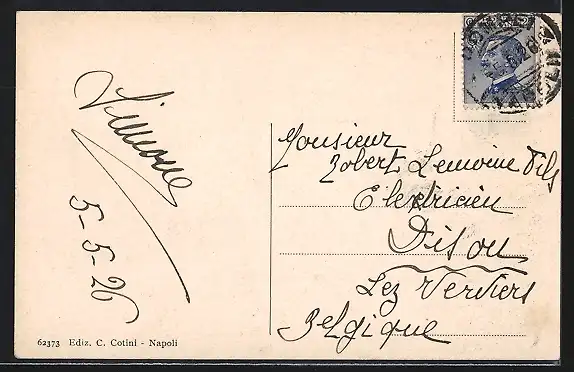 Simone
5-5-26
Monsieur
Robert Lemoine Fils
Electricien
Dison
Lez Verviers
Belgique
62373 Ediz. C. Cotini - Napoli